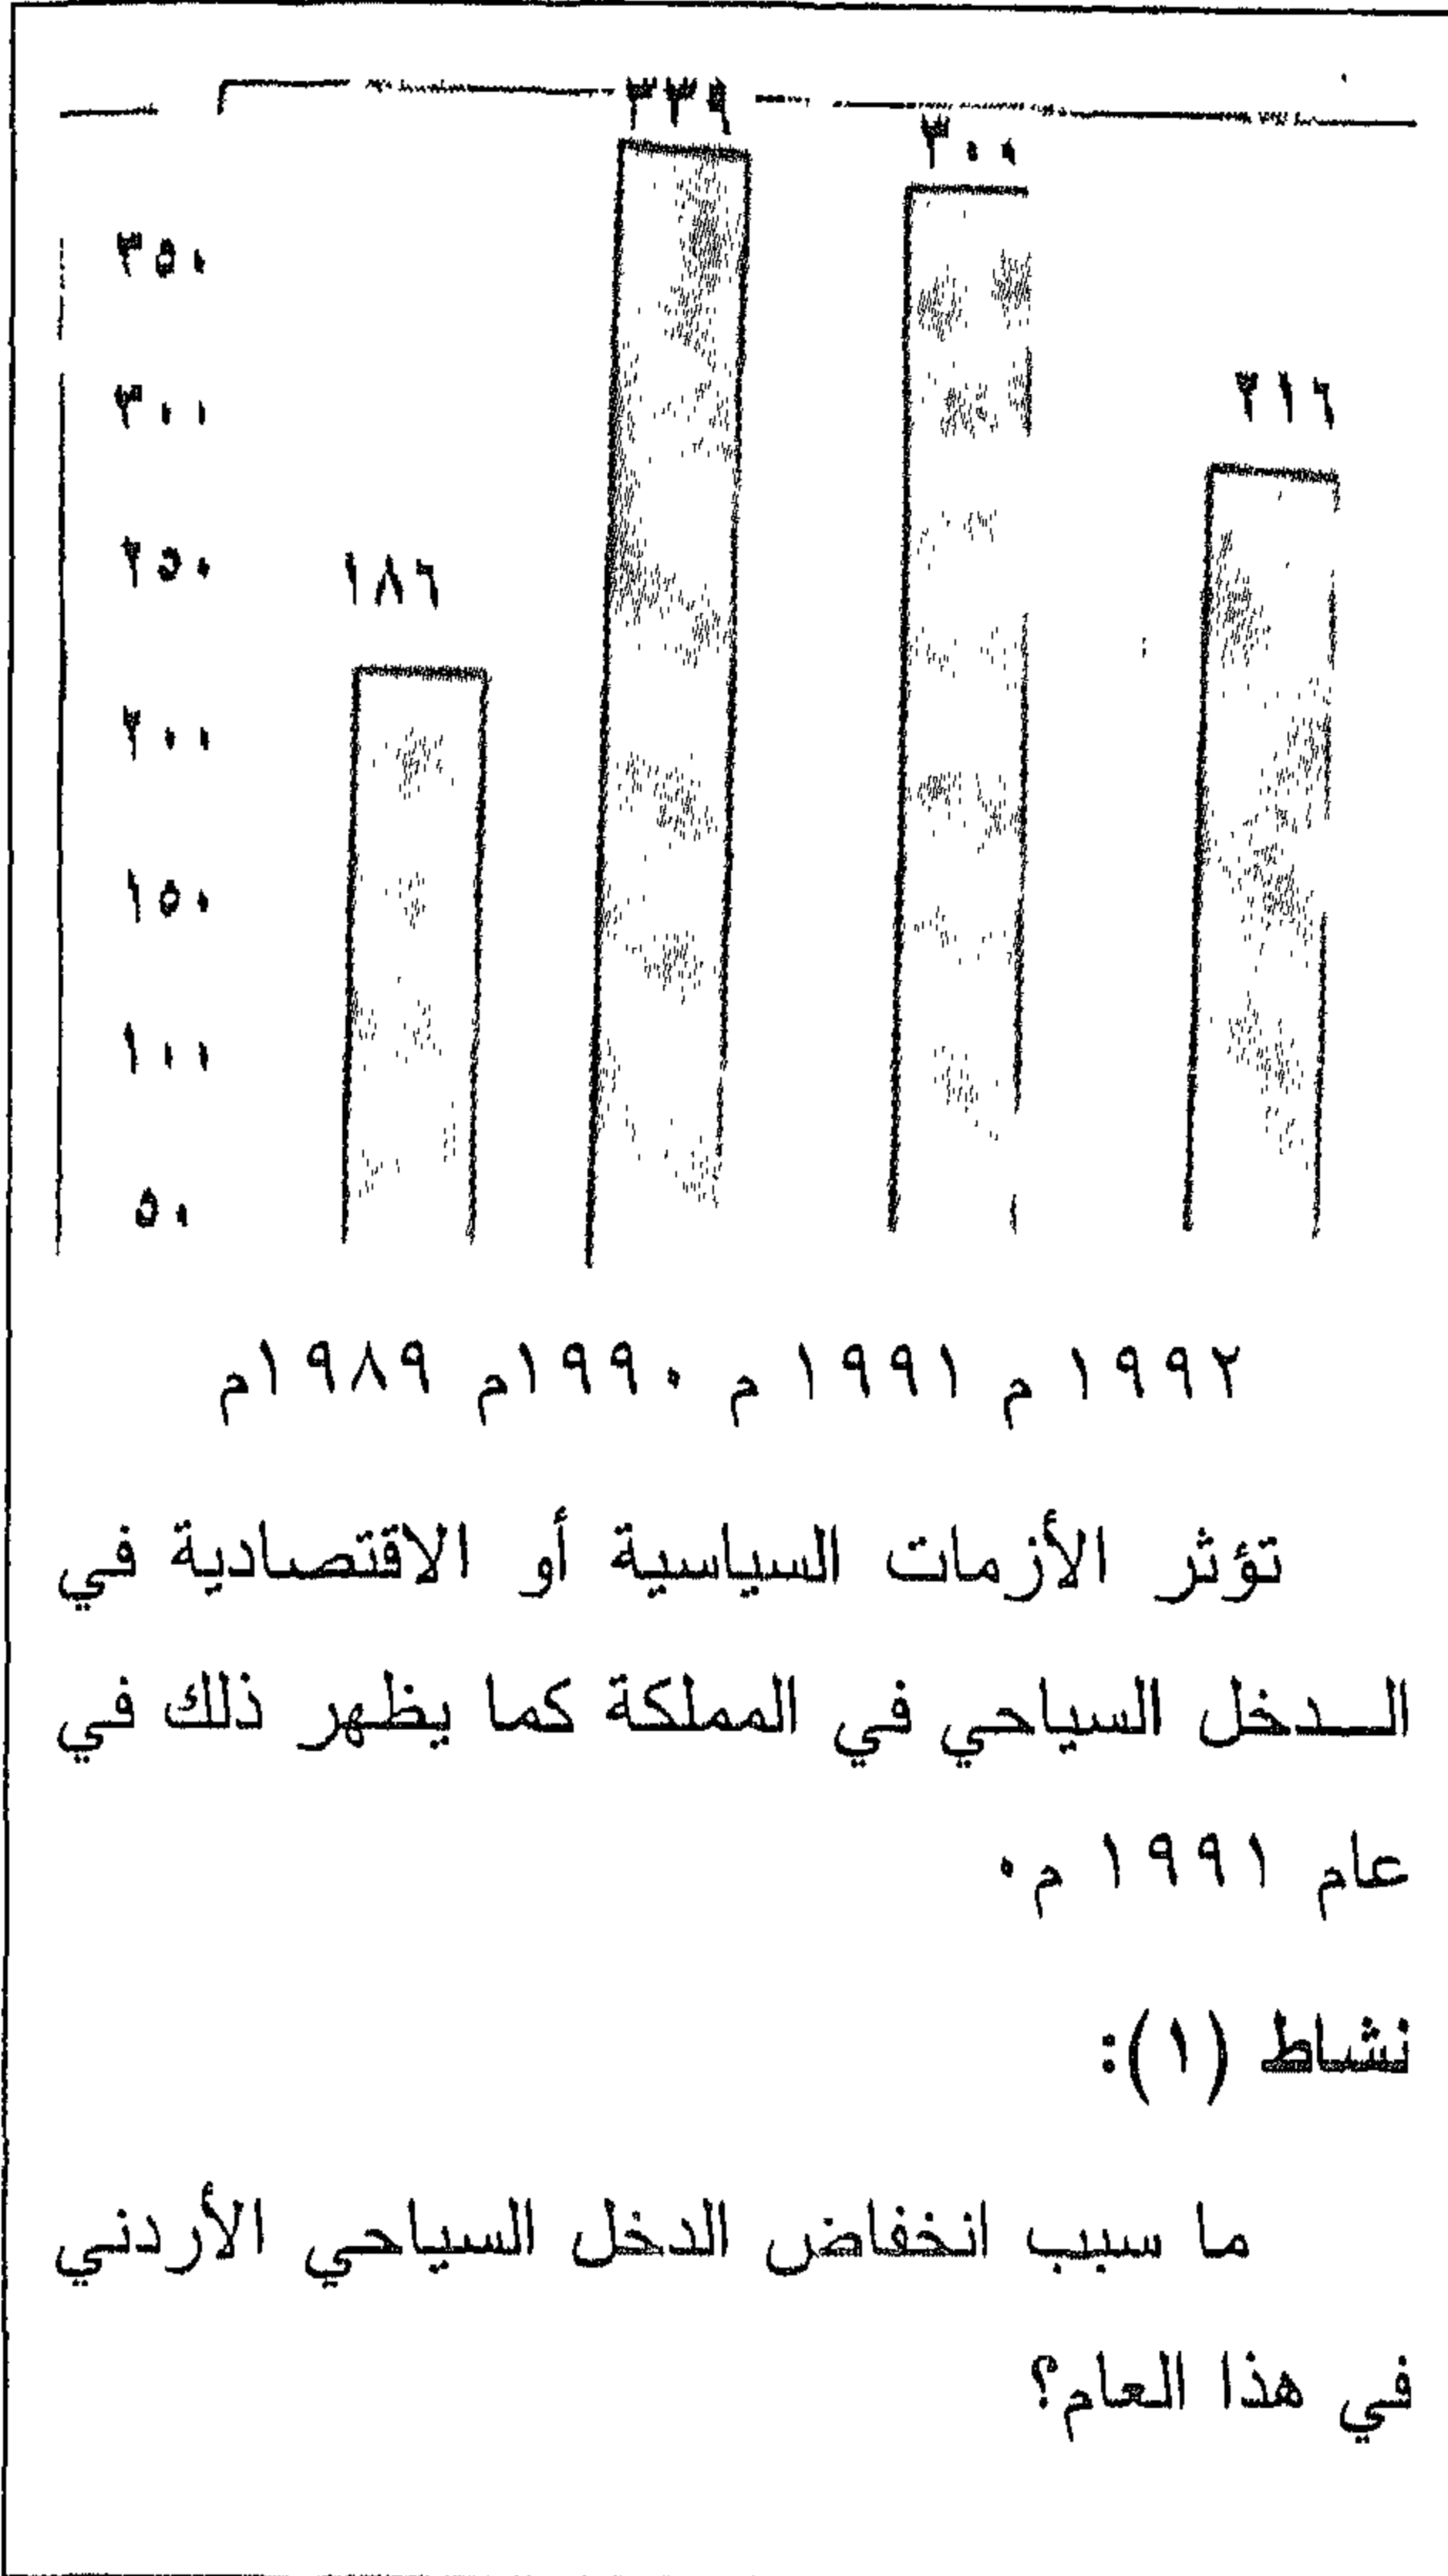 ٣٣٩
٣٠٠
٣٥٠
٣٠٠
٢١٦
٢٥٠
١٨٦
٢٠٠
١٥٠
١٠٠
٥٠
١٩٩٢ م ١٩٩١ م ١٩٩٠م ١٩٨٩م
تؤثر الأزمات السياسية أو الاقتصادية في
الـدخل السياحي في المملكة كما يظهر ذلك في
عام ١٩٩١ م٠
نشاط (١):
ما سبب انخفاض الدخل السياحي الأردني
في هذا العام؟